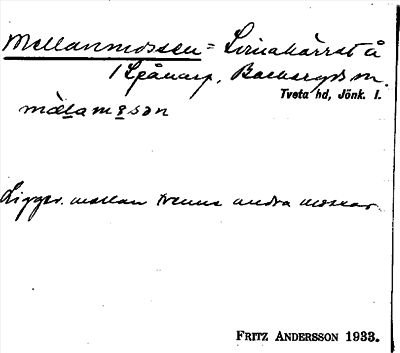 Mellanmossen = Linnakärret å
/ Ljånarp, Barkeryds sn.
Tveta hd, Jönk. l.
mæ̀lamȯsən
Ligger mellan tvenne andra mossar.
FRITZ ANDERSSON 1933.